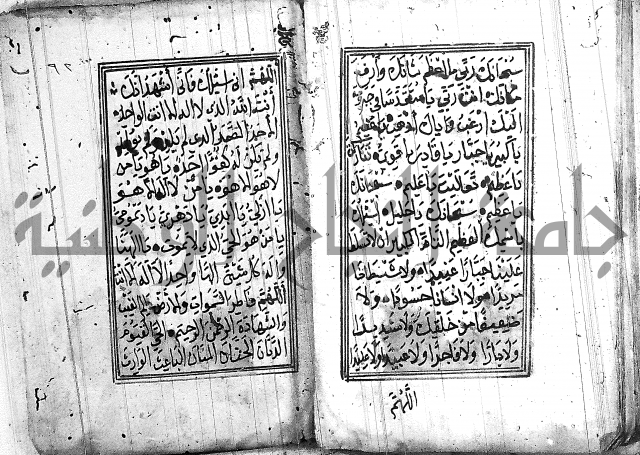 سبحانك ربي ما اعظم شانك وارفع
مكانك انت ربي يا متقدسا في جبروته
اليك ارغب واياك ارهب يا عظيم
يا كبير يا جبار يا قادر يا قوي تباركت
يا عظيم تعاليت يا عليم سبحانك
يا عظيم سبحانك يا جليل اسئلك
باسمك العظيم التام الكبير ان لا تسلط
علينا جبارا عنيدا ولا شيطانا
مريدا ولا انسانا حسودا ولا
ضعيفا من خلقك ولا شديدا
ولا بارا ولا فاجرا ولا عبيدا ولا عنيدا
اللهم
اللهم اني اسئلك فاني اشهد انك
انت الله الذي لا اله الا انت الواحد
الاحد الصمد الذي لم يلد ولم يولد
ولم يكن له كفوا احد يا هو يا من
لا هو الا هو يا من لا اله الا هو
يا ازلي يا ابدي يا دهري يا ديمومي
يا من هو الحي الذي لا يموت يا الهنا
واله كل شيئ الها واحدا لا اله الا انت
اللهم فاطر السموات والارض عالم الغيب
والشهادة الرحمن الرحيم الحي القيوم
الديان الحنان المنان الباعث الوارث
جامعة النجاح الوطنية